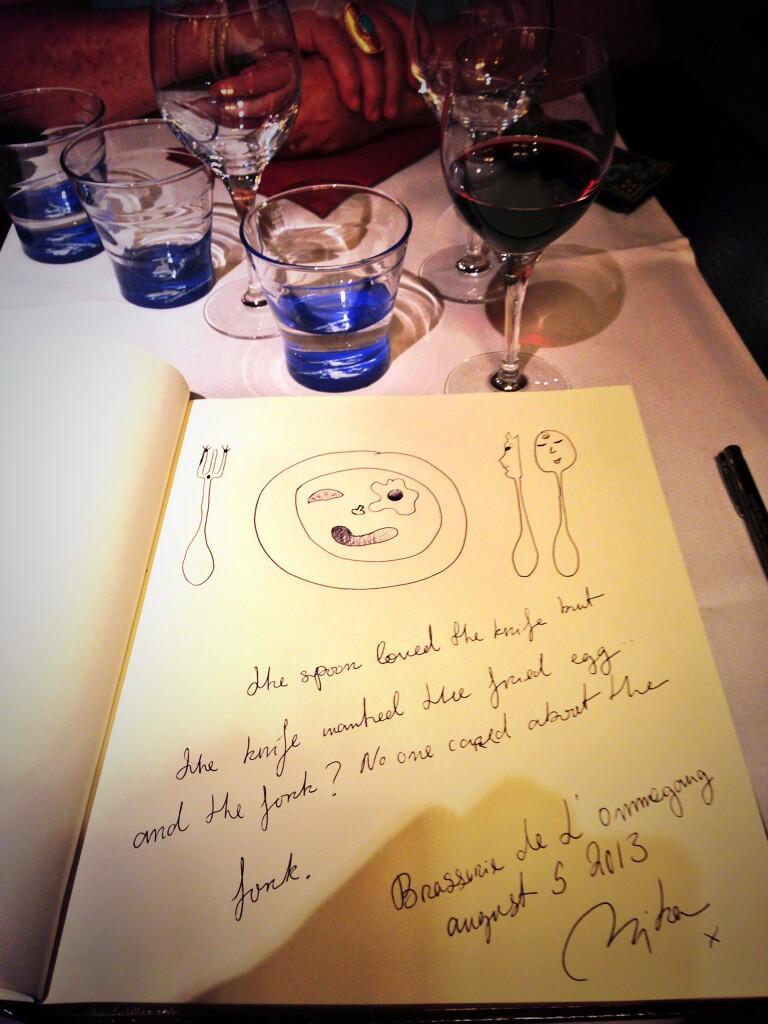 the spoon loved the knife but
the knife wanted the fried egg...
and the fork? No one cared about the
fork.
Brasserie de L'ommegang
august 5 2013
Mika x